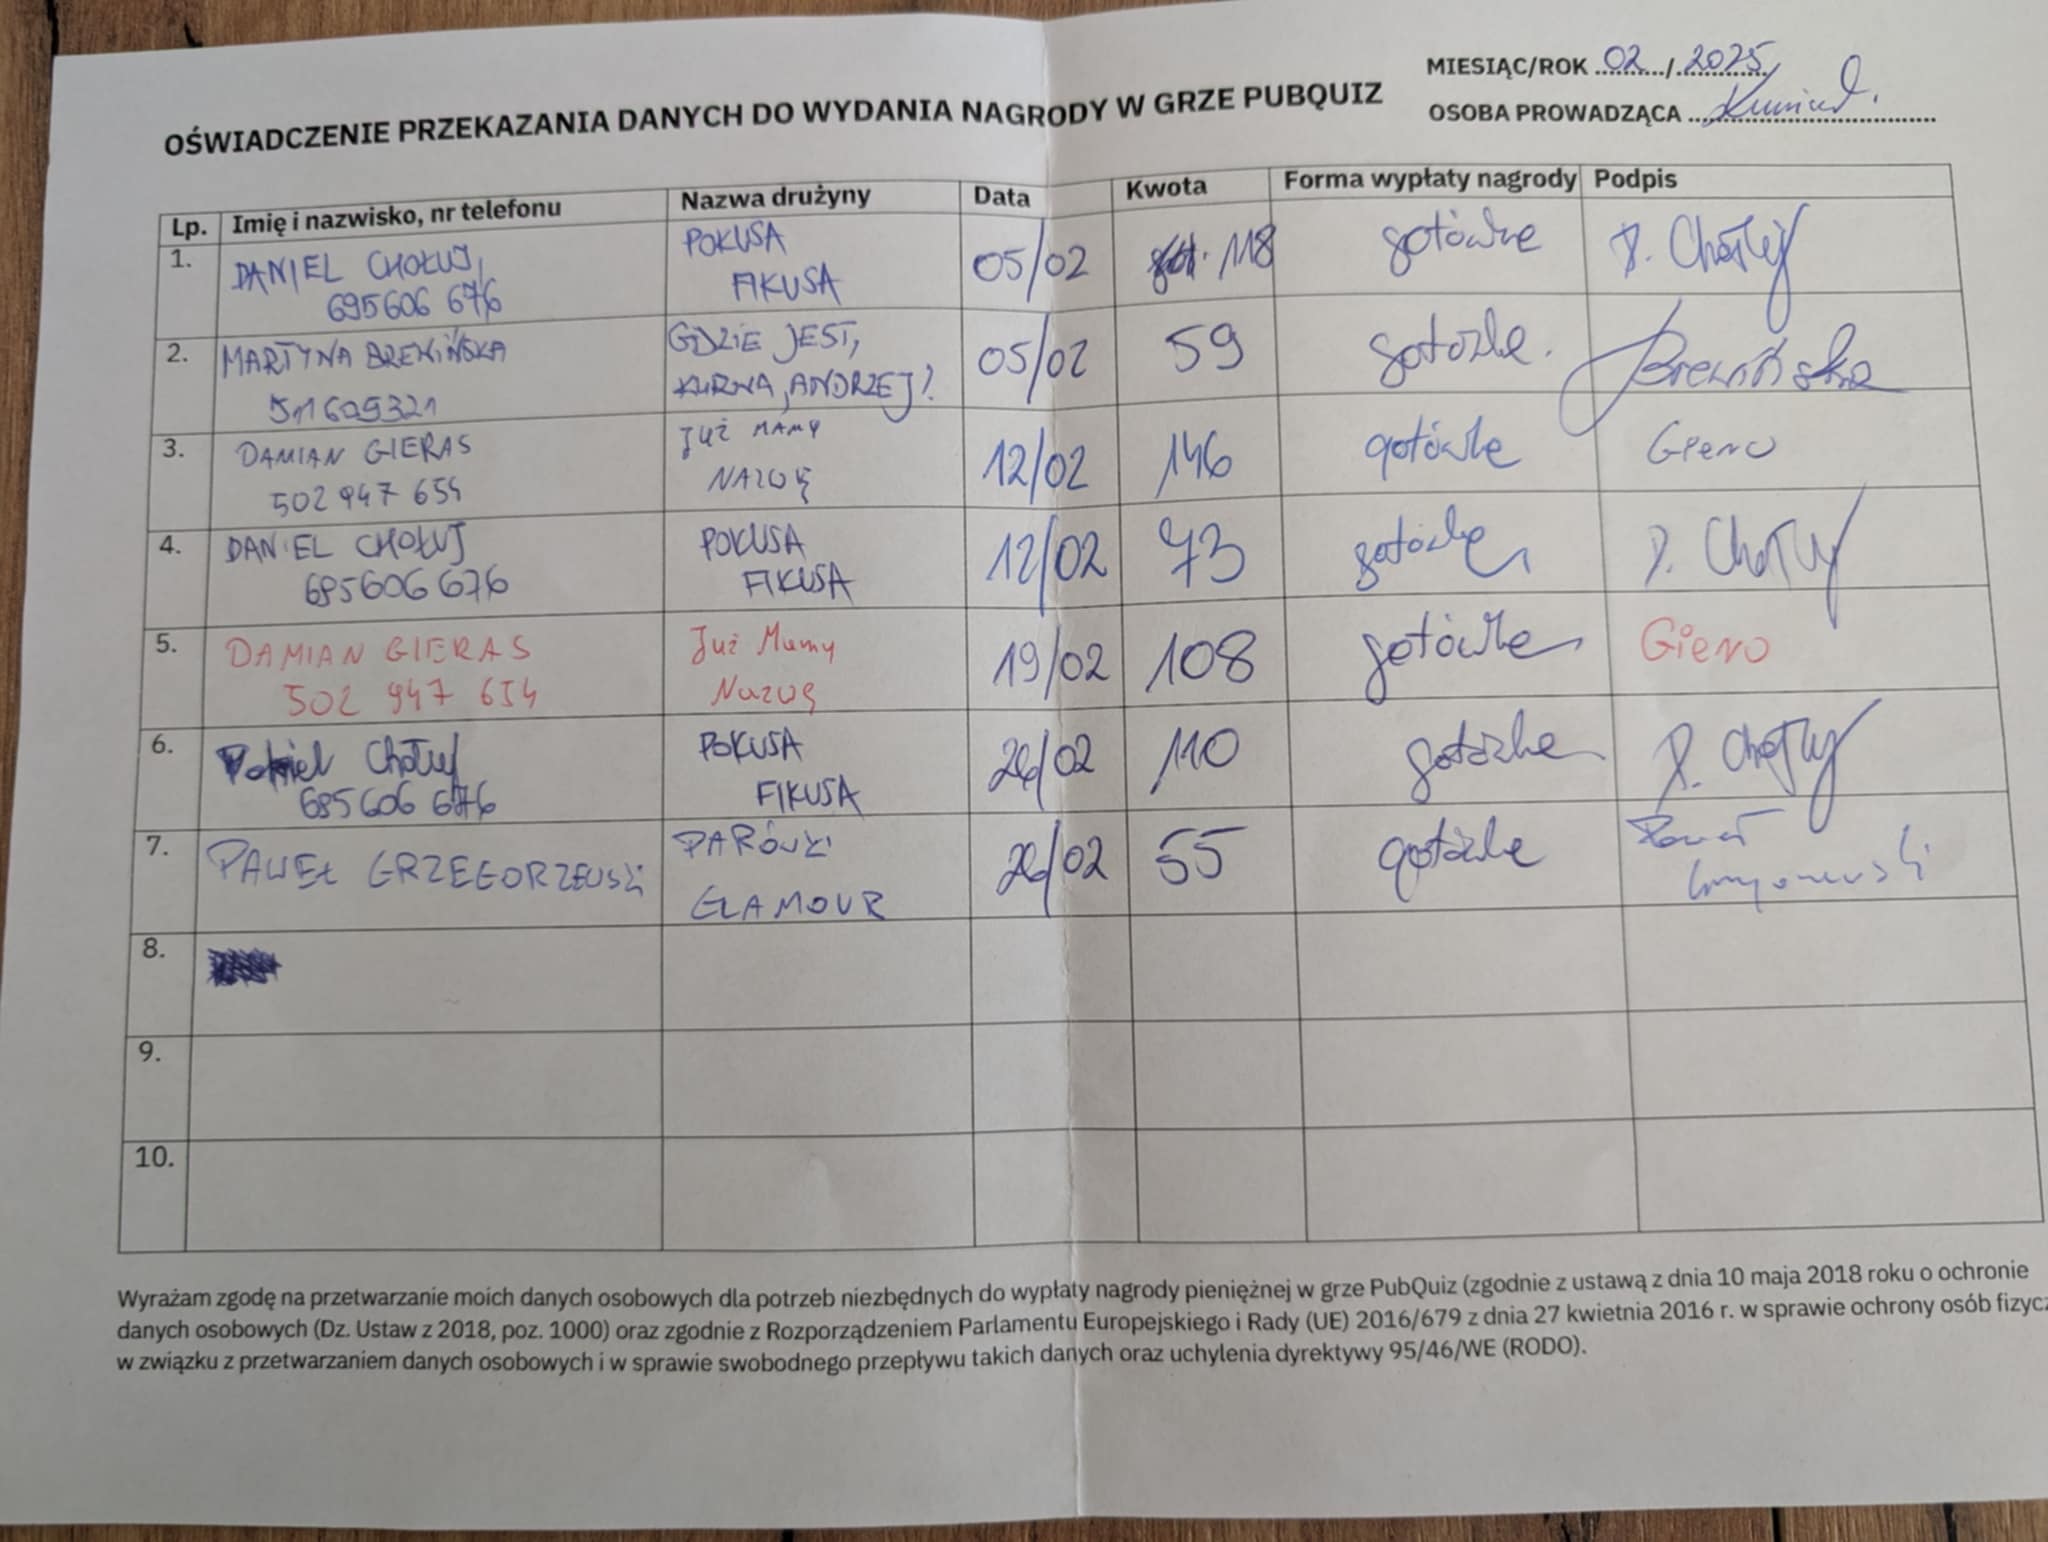 MIESIĄC/ROK 02/2025
OŚWIADCZENIE PRZEKAZANIA DANYCH DO WYDANIA NAGRODY W GRZE PUBQUIZ
OSOBA PROWADZĄCA
Lp. Imię i nazwisko, nr telefonu Nazwa drużyny Data Kwota Forma wypłaty nagrody Podpis
1. DANIEL CHOŁUJ, POKUSA 05/02 118 gotówke D. Chołuj
695606 676 FIKUSA
2. MARTYNA BREWIŃSKA GDZIE JEST, 05/02 59 gotówke. Brewińska
511609321 KURWA, ANDRZEJ?
3. DAMIAN GIERAS JUŻ MAMY 12/02 146 gotówke Giero
502 947 654 NAZWĘ
4. DANIEL CHOŁUJ POKUSA 12/02 73 gotówke D. Chołuj
695606 676 FIKUSA
5. DAMIAN GIERAS Już Mamy 19/02 108 gotówke Giero
502 947 654 Nazwę
6. Daniel Chołuj POKUSA 26/02 110 gotówke D. Chołuj
695606 676 FIKUSA
7. PAWEŁ GRZEGORZEWSKI PARÓWKI 26/02 55 gotówke Paweł
GLAMOUR
8.
9.
10.
Wyrażam zgodę na przetwarzanie moich danych osobowych dla potrzeb niezbędnych do wypłaty nagrody pieniężnej w grze PubQuiz (zgodnie z ustawą z dnia 10 maja 2018 roku o ochronie
danych osobowych (Dz. Ustaw z 2018, poz. 1000) oraz zgodnie z Rozporządzeniem Parlamentu Europejskiego i Rady (UE) 2016/679 z dnia 27 kwietnia 2016 r. w sprawie ochrony osób fizyc
w związku z przetwarzaniem danych osobowych i w sprawie swobodnego przepływu takich danych oraz uchylenia dyrektywy 95/46/WE (RODO).